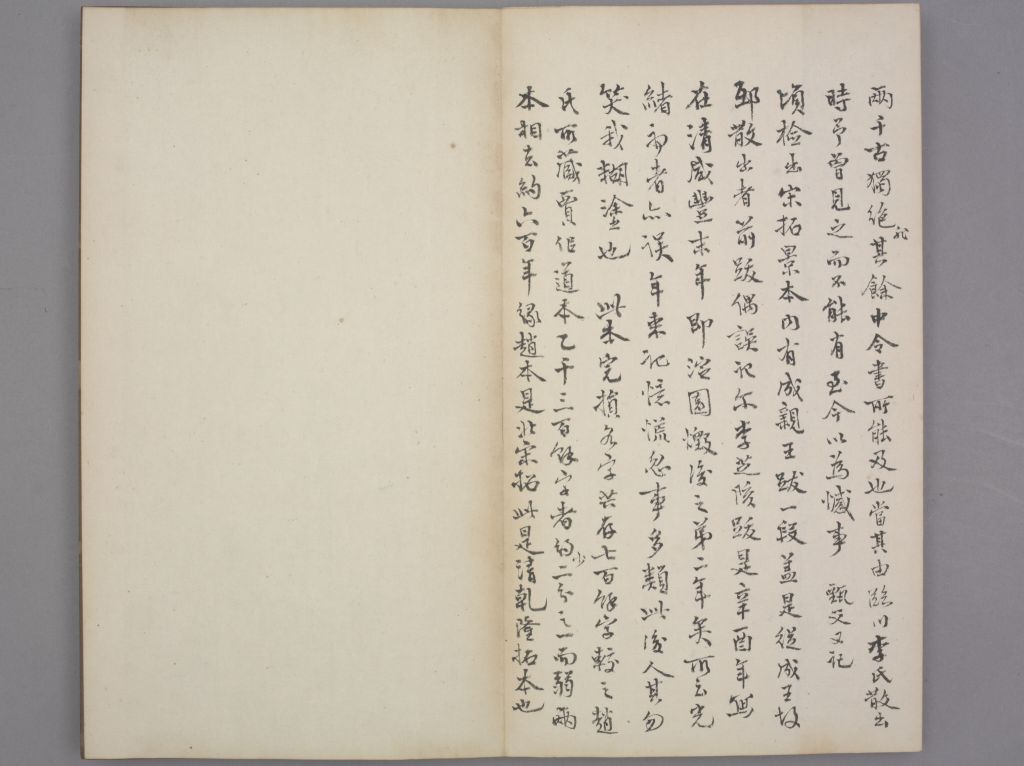 兩千古獨絕非其餘中令書所能及也當其由臨川李氏散出
時予曾見之而不能有至今以為憾事　甄父又記
頃檢出宋拓景本內有成親王跋一段蓋是從成王故
邸散出者前跋偶誤記尔李芝陔跋是辛酉年無
在清咸豐末年即淀園燬後之第二年矣所云光
緒初者亦誤年來記憶慌忽事多類此後人其勿
笑我糊塗也　此本完損各字共存七百餘字較之趙
氏所藏賈似道本乙千三百餘字者約少二分之一而弱兩
本相去約六百年緣趙本是北宋拓此是清乾隆拓本也